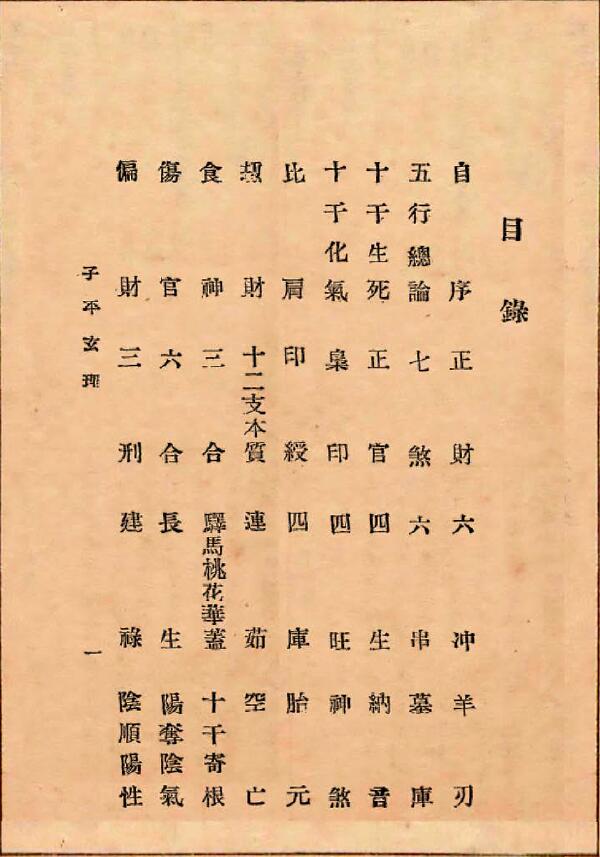 目錄
自序 正財 六冲 羊刃
五行總論 七煞 六串 墓庫
十干生死 正官 四生 納音
十干化氣 梟印 四旺 神煞
比肩 印綬 四庫 胎元
刼財 十二支本質 連茹 空亡
食神 三合 驛馬桃花華蓋 十干寄根
傷官 六合 長生 陽奪陰氣
偏財 三刑 建祿 陰順陽性
子平玄理 一